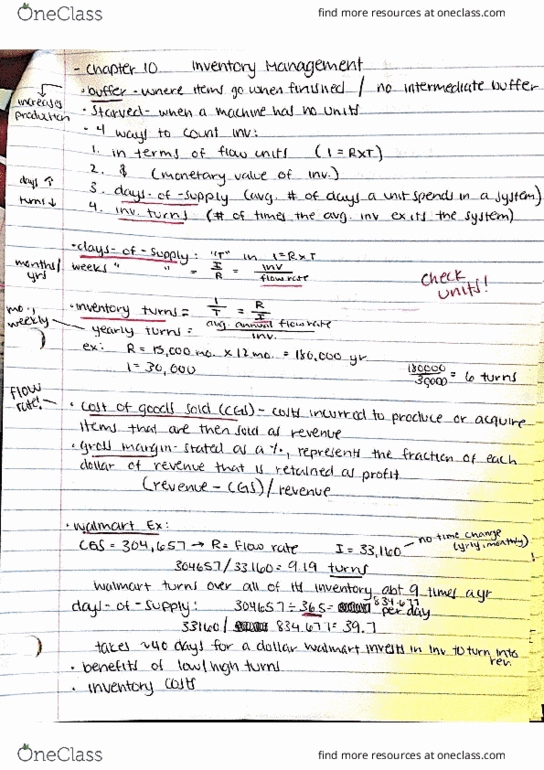 OneClass
find more resources at oneclass.com
- Chapter 10 Inventory Management
• buffer - where items go when finished / no intermediate buffer
increases production
• Starved - when a machine has no units
• 4 ways to count inv:
1. in terms of flow units (I = RxT)
2. $ (monetary value of inv.)
days ↑
3. days-of-supply (avg. # of days a unit spends in a system)
turns ↓
4. inv. turns (# of times the avg. inv exits the system)
• days-of-supply: "T" in I=RxT
months/yrs
weeks " " = I/R = inv/flow rate
check units!
• inventory turns = 1/T = R/I
mo., weekly
yearly turns = avg. annual flow rate/inv.
ex: R = 15,000 mo. x 12 mo. = 180,000 yr.
I = 30,000
180000/30000 = 6 turns
flow rate!
• cost of goods sold (CGS) - costs incurred to produce or acquire
items that are then sold as revenue
• gross margin - stated as a %, represents the fraction of each
dollar of revenue that is retained as profit
(revenue - CGS) / revenue
• Walmart Ex:
CGS = 304,657 → R = flow rate I = 33,160 no time change (yrly, monthly)
304657 / 33160 = 9.19 turns
walmart turns over all of its inventory abt 9 times a yr
days-of-supply: 304657 ÷ 365 = 834.677 per day
33160 / 834.677 = 39.7
takes ~40 days for a dollar walmart invests in inv to turn into rev.
• benefits of low/high turns
• inventory costs
OneClass
find more resources at oneclass.com